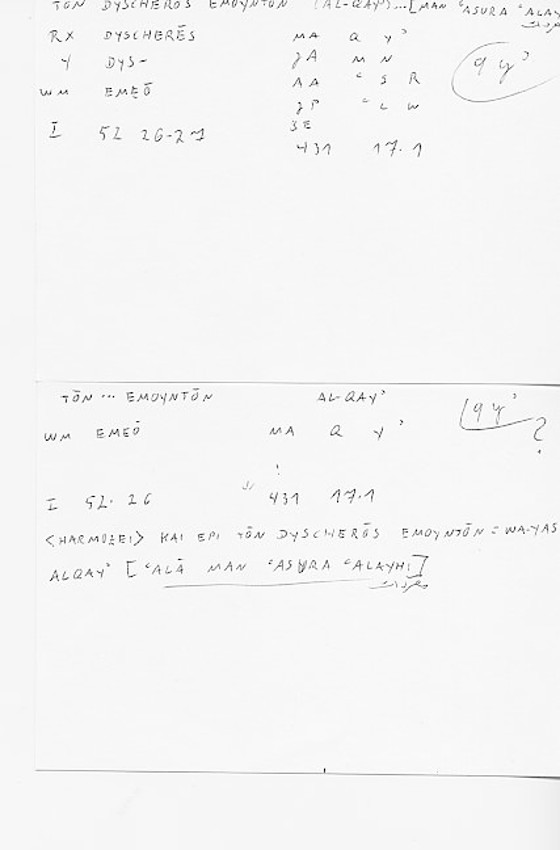 TŌN DYSCHERŌS EMOYNTŌN (AL-QAYʾ)...[MAN ʿASURA ʿALAY
RX DYSCHERĒS MA Q Yʾ
Y DYS- JA M N qyʾ
WM EMEŌ AA ʿ S R
JP ʿ L W
I 52 26-27 BE
431 17.1
TŌN ... EMOYNTŌN AL-QAYʾ qyʾ ?
WM EMEŌ MA Q Yʾ
I 52. 26 431 17.1
<HARMOZEI> KAI EPI TŌN DYSCHERŌS EMOYNTŌN = WA-YAS
ALQAYʾ [ʿALĀ MAN ʿASURA ʿALAYHI]